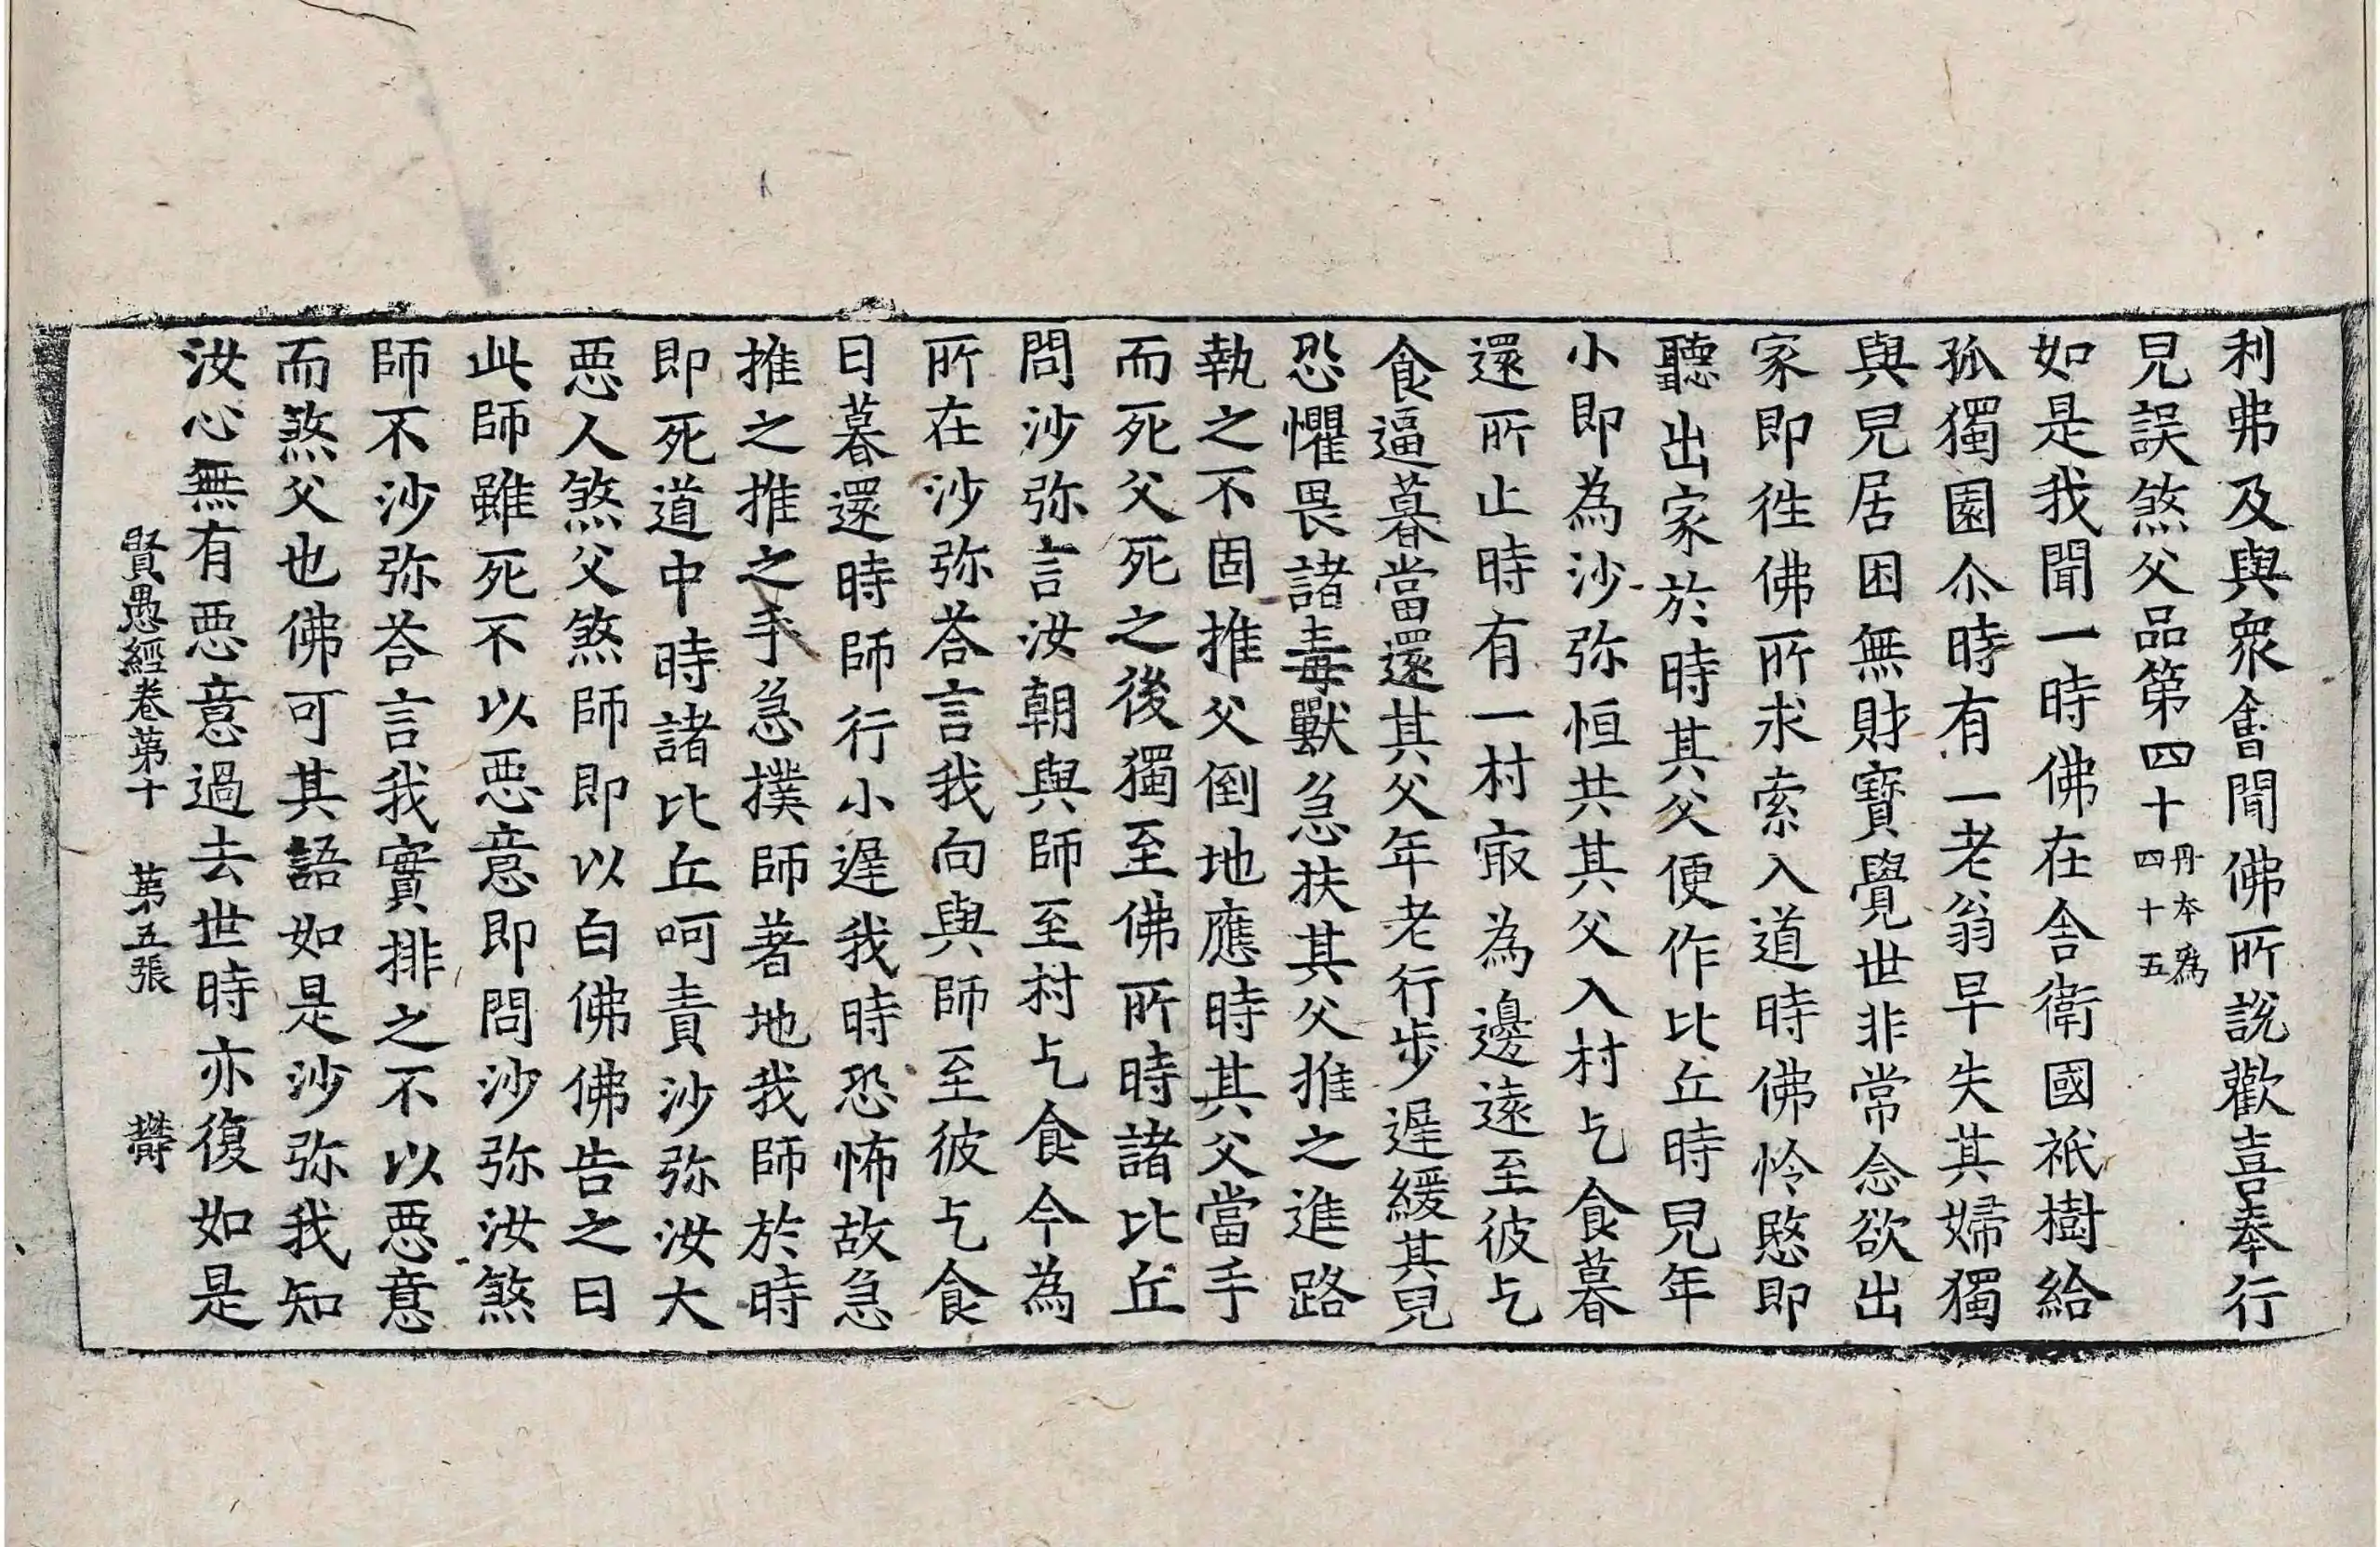 利弗及與衆會聞佛所說歡喜奉行
兒誤煞父品第四十丹本爲四十五
如是我聞一時佛在舍衛國祇樹給
孤獨園尒時有一老翁早失其婦獨
與兒居困無財寶覺世非常念欲出
家即徃佛所求索入道時佛怜愍即
聽出家於時其父便作比丘時兒年
小即為沙弥恒共其父入村乞食暮
還所止時有一村㝡為邊遠至彼乞
食逼暮當還其父年老行步遲緩其兒
恐懼畏諸毒獸急扶其父推之進路
執之不固推父倒地應時其父當手
而死父死之後獨至佛所時諸比丘
問沙弥言汝朝與師至村乞食今為
所在沙弥荅言我向與師至彼乞食
日暮還時師行小遲我時恐怖故急
推之推之手急撲師著地我師於時
即死道中時諸比丘呵責沙弥汝大
惡人煞父煞師即以白佛佛告之曰
此師雖死不以惡意即問沙弥汝煞
師不沙弥荅言我實排之不以惡意
而煞父也佛可其語如是沙弥我知
汝心無有惡意過去世時亦復如是
賢愚經卷第十 第五張 欝